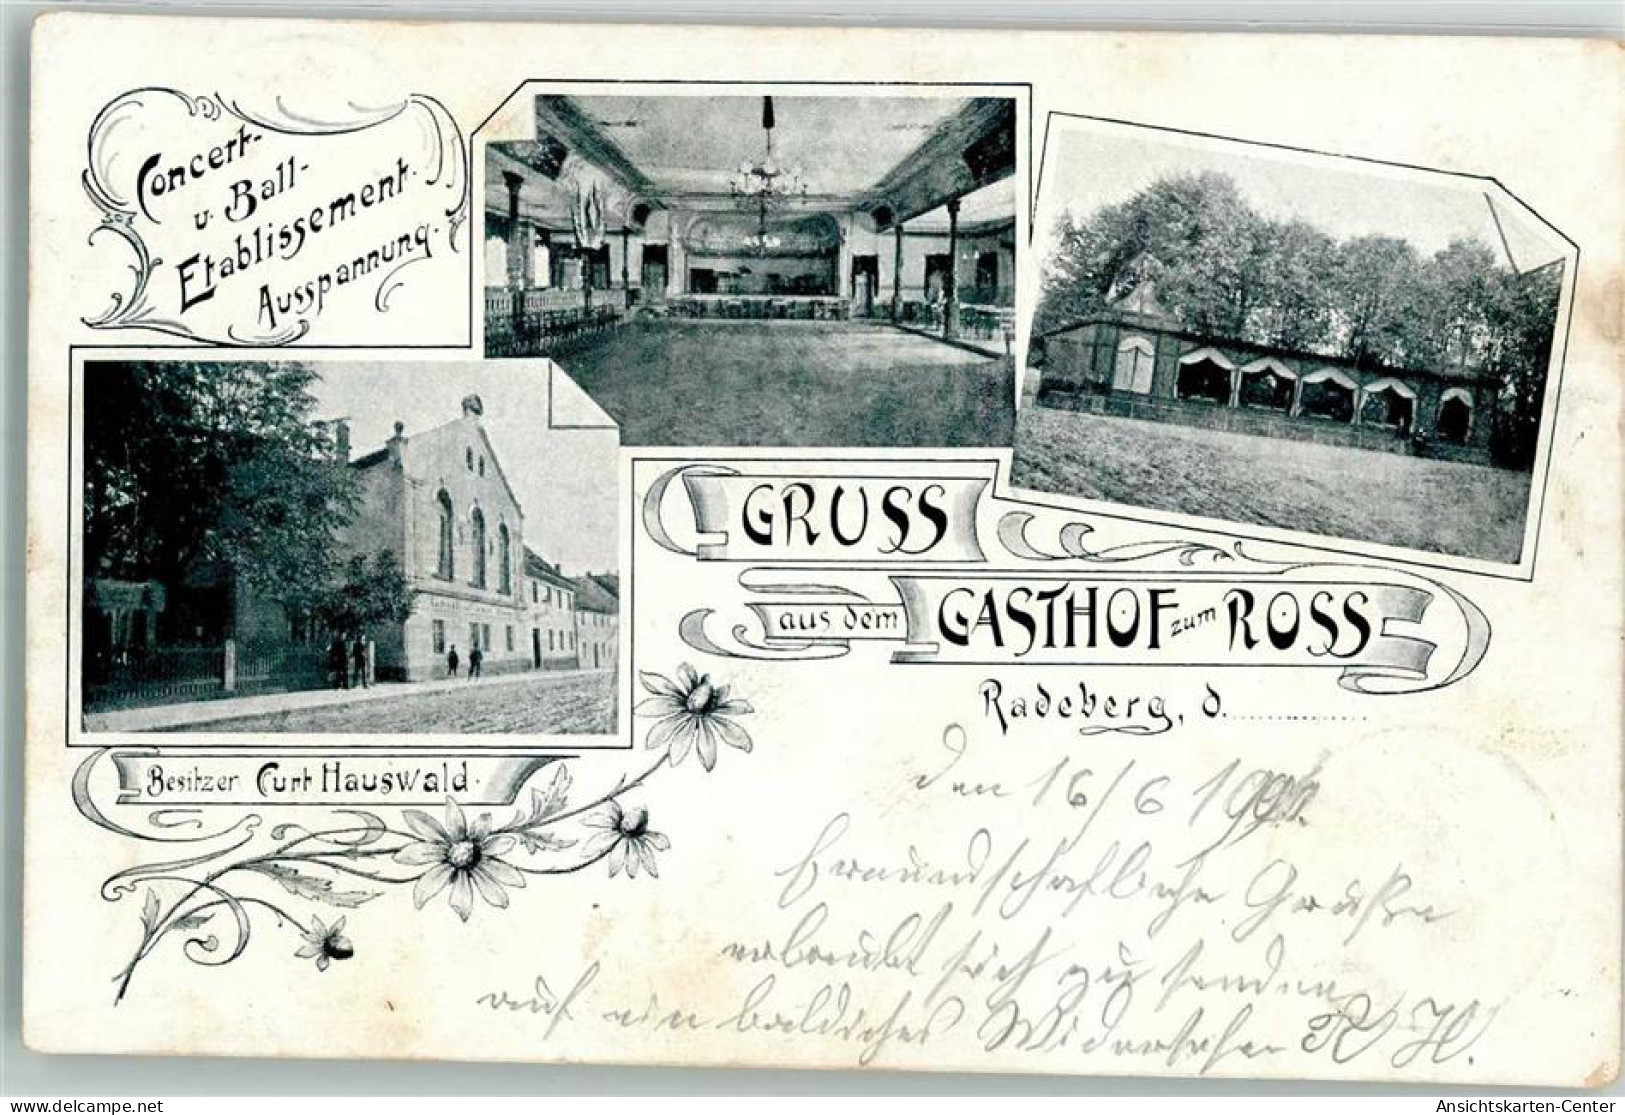 Concert-
u. Ball-
Etablissement.
Ausspannung.
GRUSS
aus dem GASTHOF zum ROSS
Radeberg, d.
Besitzer Curt Hauswald.
den 16/6 19
Freundschaftliche Grüße
erlaubt sich zu senden
auf ein baldiches Widersehen R H.
delcampe.net
Ansichtskarten-Center